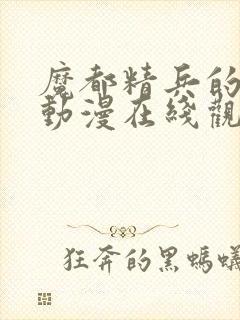 魔都精兵的
動漫在綫觀
狂奔的黑螞蟻